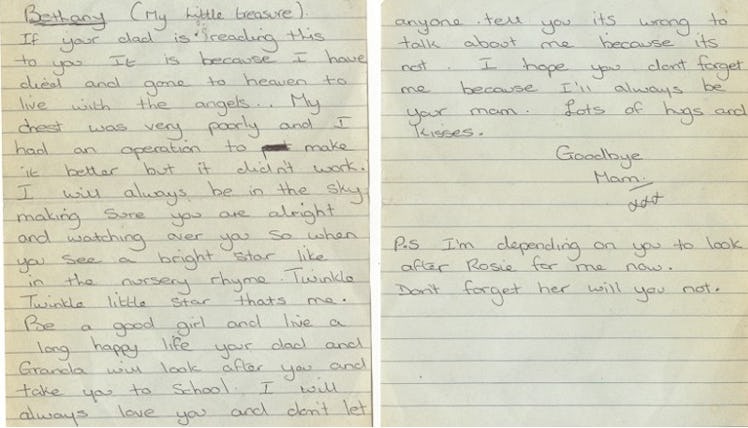 Bethany (My little treasure).
If your dad is reading this
to you It is because I have
died and gone to heaven to
live with the angels... My
chest was very poorly and I
had an operation to make
it better but it didn't work.
I will always be in the sky
making sure you are alright
and watching over you so when
you see a bright star like
in the nursery rhyme. Twinkle
Twinkle little star thats me.
Be a good girl and live a
long happy life your dad and
Granda will look after you and
take you to School. I will
always love you and don't let
anyone tell you its wrong to
talk about me because its
not. I hope you dont forget
me because I'll always be
your mam. Lots of hugs and
kisses.
Goodbye
Mam.
xxx
P.S I'm depending on you to look
after Rosie for me now.
Don't forget her will you not.